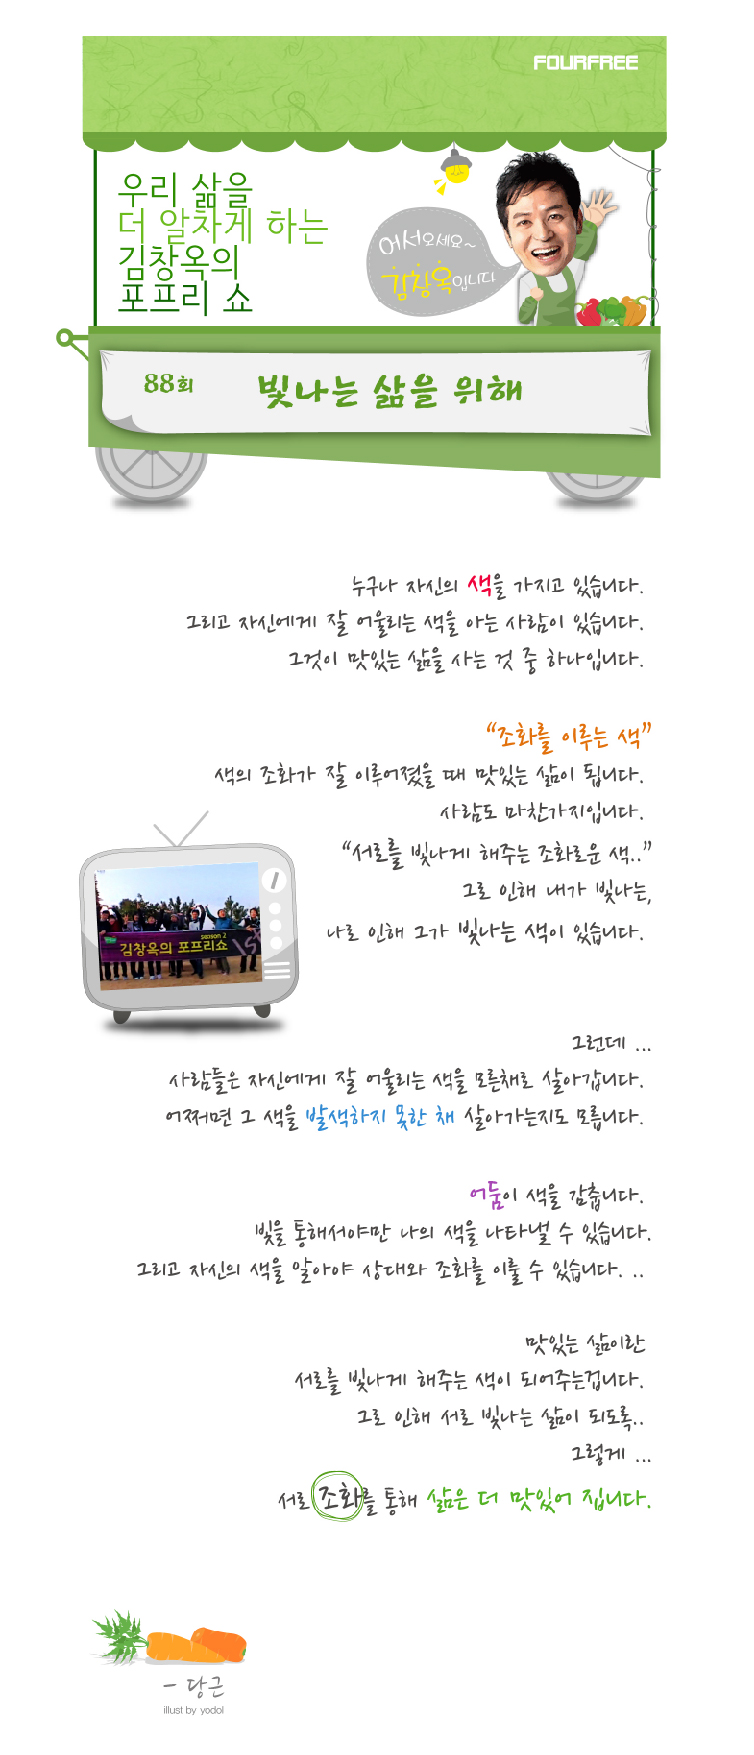 FOURFREE
우리 삶을
더 알차게 하는
김창옥의
포프리 쇼
어서오세요~
김창옥입니다
88회 빛나는 삶을 위해
누구나 자신의 색을 가지고 있습니다.
그리고 자신에게 잘 어울리는 색을 아는 사람이 있습니다.
그것이 맛있는 삶을 사는 것 중 하나입니다.
“조화를 이루는 색”
색의 조화가 잘 이루어졌을 때 맛있는 삶이 됩니다.
사람도 마찬가지입니다.
“서로를 빛나게 해주는 조화로운 색..”
그로 인해 내가 빛나는,
나로 인해 그가 빛나는 색이 있습니다.
season 2
김창옥의 포프리쇼
1st
그런데 ...
사람들은 자신에게 잘 어울리는 색을 모른채로 살아갑니다.
어쩌면 그 색을 발색하지 못한 채 살아가는지도 모릅니다.
어둠이 색을 감춥니다.
빛을 통해서야만 나의 색을 나타낼 수 있습니다.
그리고 자신의 색을 알아야 상대와 조화를 이룰 수 있습니다. ..
맛있는 삶이란
서로를 빛나게 해주는 색이 되어주는겁니다.
그로 인해 서로 빛나는 삶이 되도록..
그렇게 ...
서로 조화를 통해 삶은 더 맛있어 집니다.
- 당근
illust by yodol